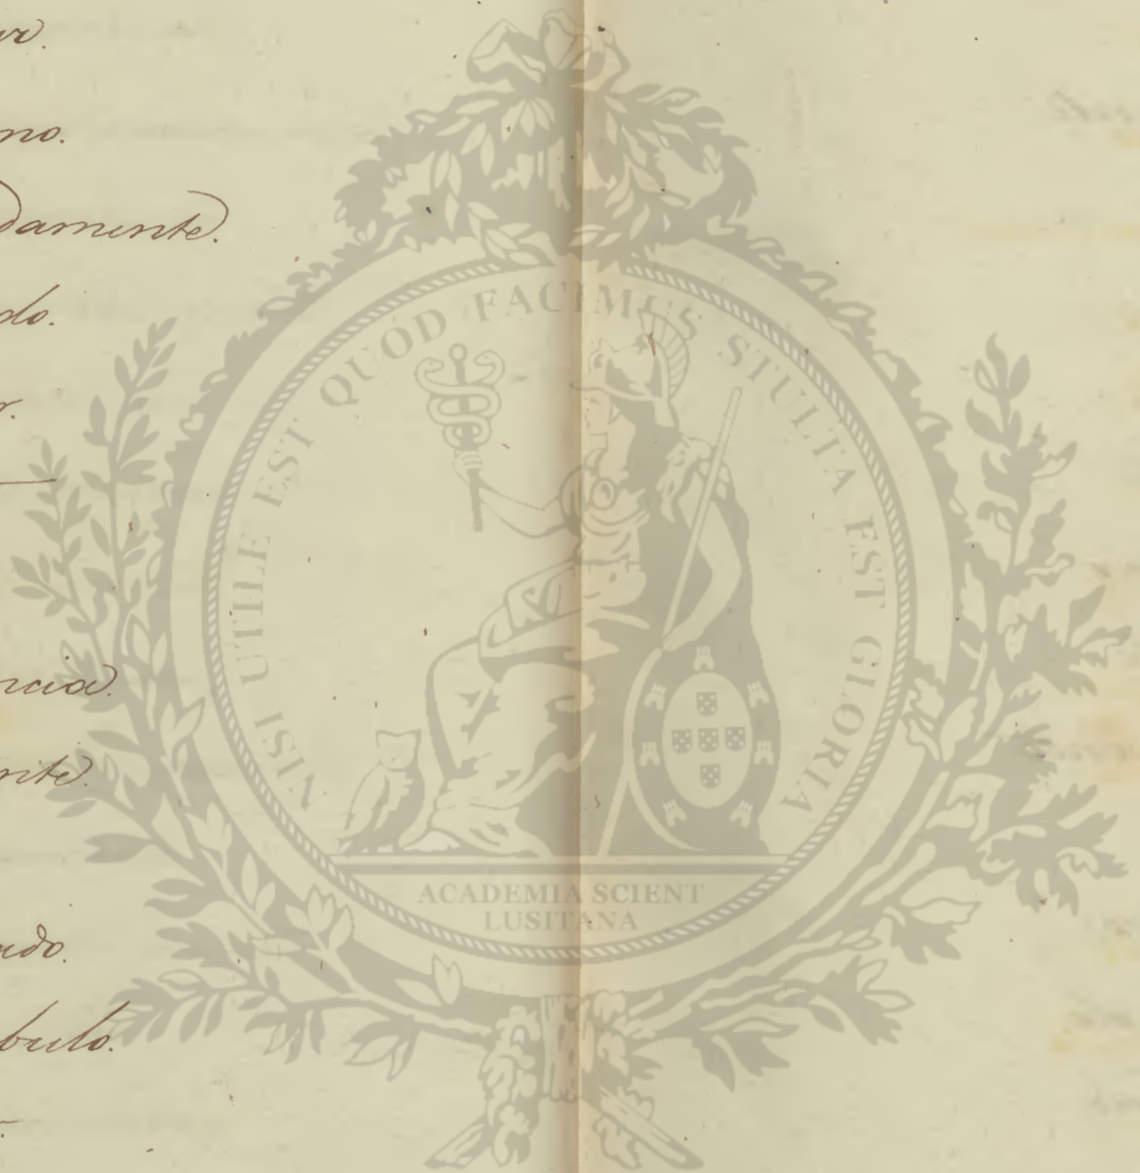 no.
damente.
do.
r.
ncia.
nte.
ndo.
bulo.
NISI UTILE EST QUOD FACIMUS STULTA EST GLORIA
ACADEMIA SCIENT
LUSITANA